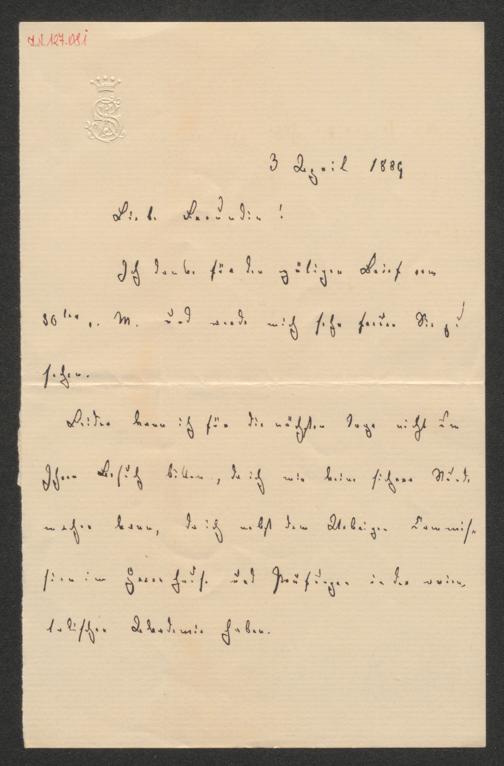 I.N. 127.081
3 April 1889
Liebe Freundin!
Ich danke für den gütigen Brief vom
30ten v. M. und werde mich sehr freuen Sie zu
sehen.
Leider kann ich für die nächsten Tage nicht um
Ihren Besuch bitten, da ich mir keine sichere Stunde
machen kann, da ich nebst dem Uebrigen Commis-
sion im Herrenhause und Prüfungen in der orien-
talischen Akademie haben.